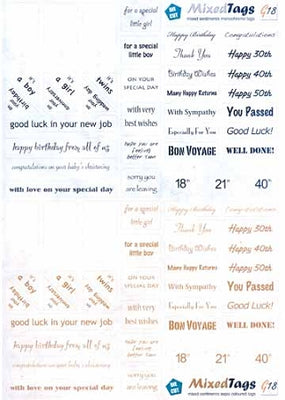 WE CUT
MixedTags G18
mixed sentiments monochrome tags
for a special
little girl
Happy Birthday
Congratulations
for a special
little boy
Thank You
Happy 30th
it's
a boy
it's
a girl
it's
twins
ON YOUR
SPECIAL DAY
Birthday Wishes
Happy 40th
Many Happy Returns
Happy 50th
with very
best wishes
With Sympathy
You Passed
good luck in your new job
Especially For You
Good Luck!
happy birthday from all of us
hope you are
feeling
better soon
BON VOYAGE
WELL DONE!
congratulations on your baby's christening
with love on your special day
sorry you
are leaving
18th
21st
40th
for a special
little girl
Happy Birthday
Congratulations
for a special
little boy
Thank You
Happy 30th
it's
a boy
it's
a girl
it's
twins
ON YOUR
SPECIAL DAY
Birthday Wishes
Happy 40th
Many Happy Returns
Happy 50th
with very
best wishes
With Sympathy
You Passed
good luck in your new job
Especially For You
Good Luck!
happy birthday from all of us
hope you are
feeling
better soon
BON VOYAGE
WELL DONE!
congratulations on your baby's christening
with love on your special day
sorry you
are leaving
18th
21st
40th
WE CUT
MixedTags G18